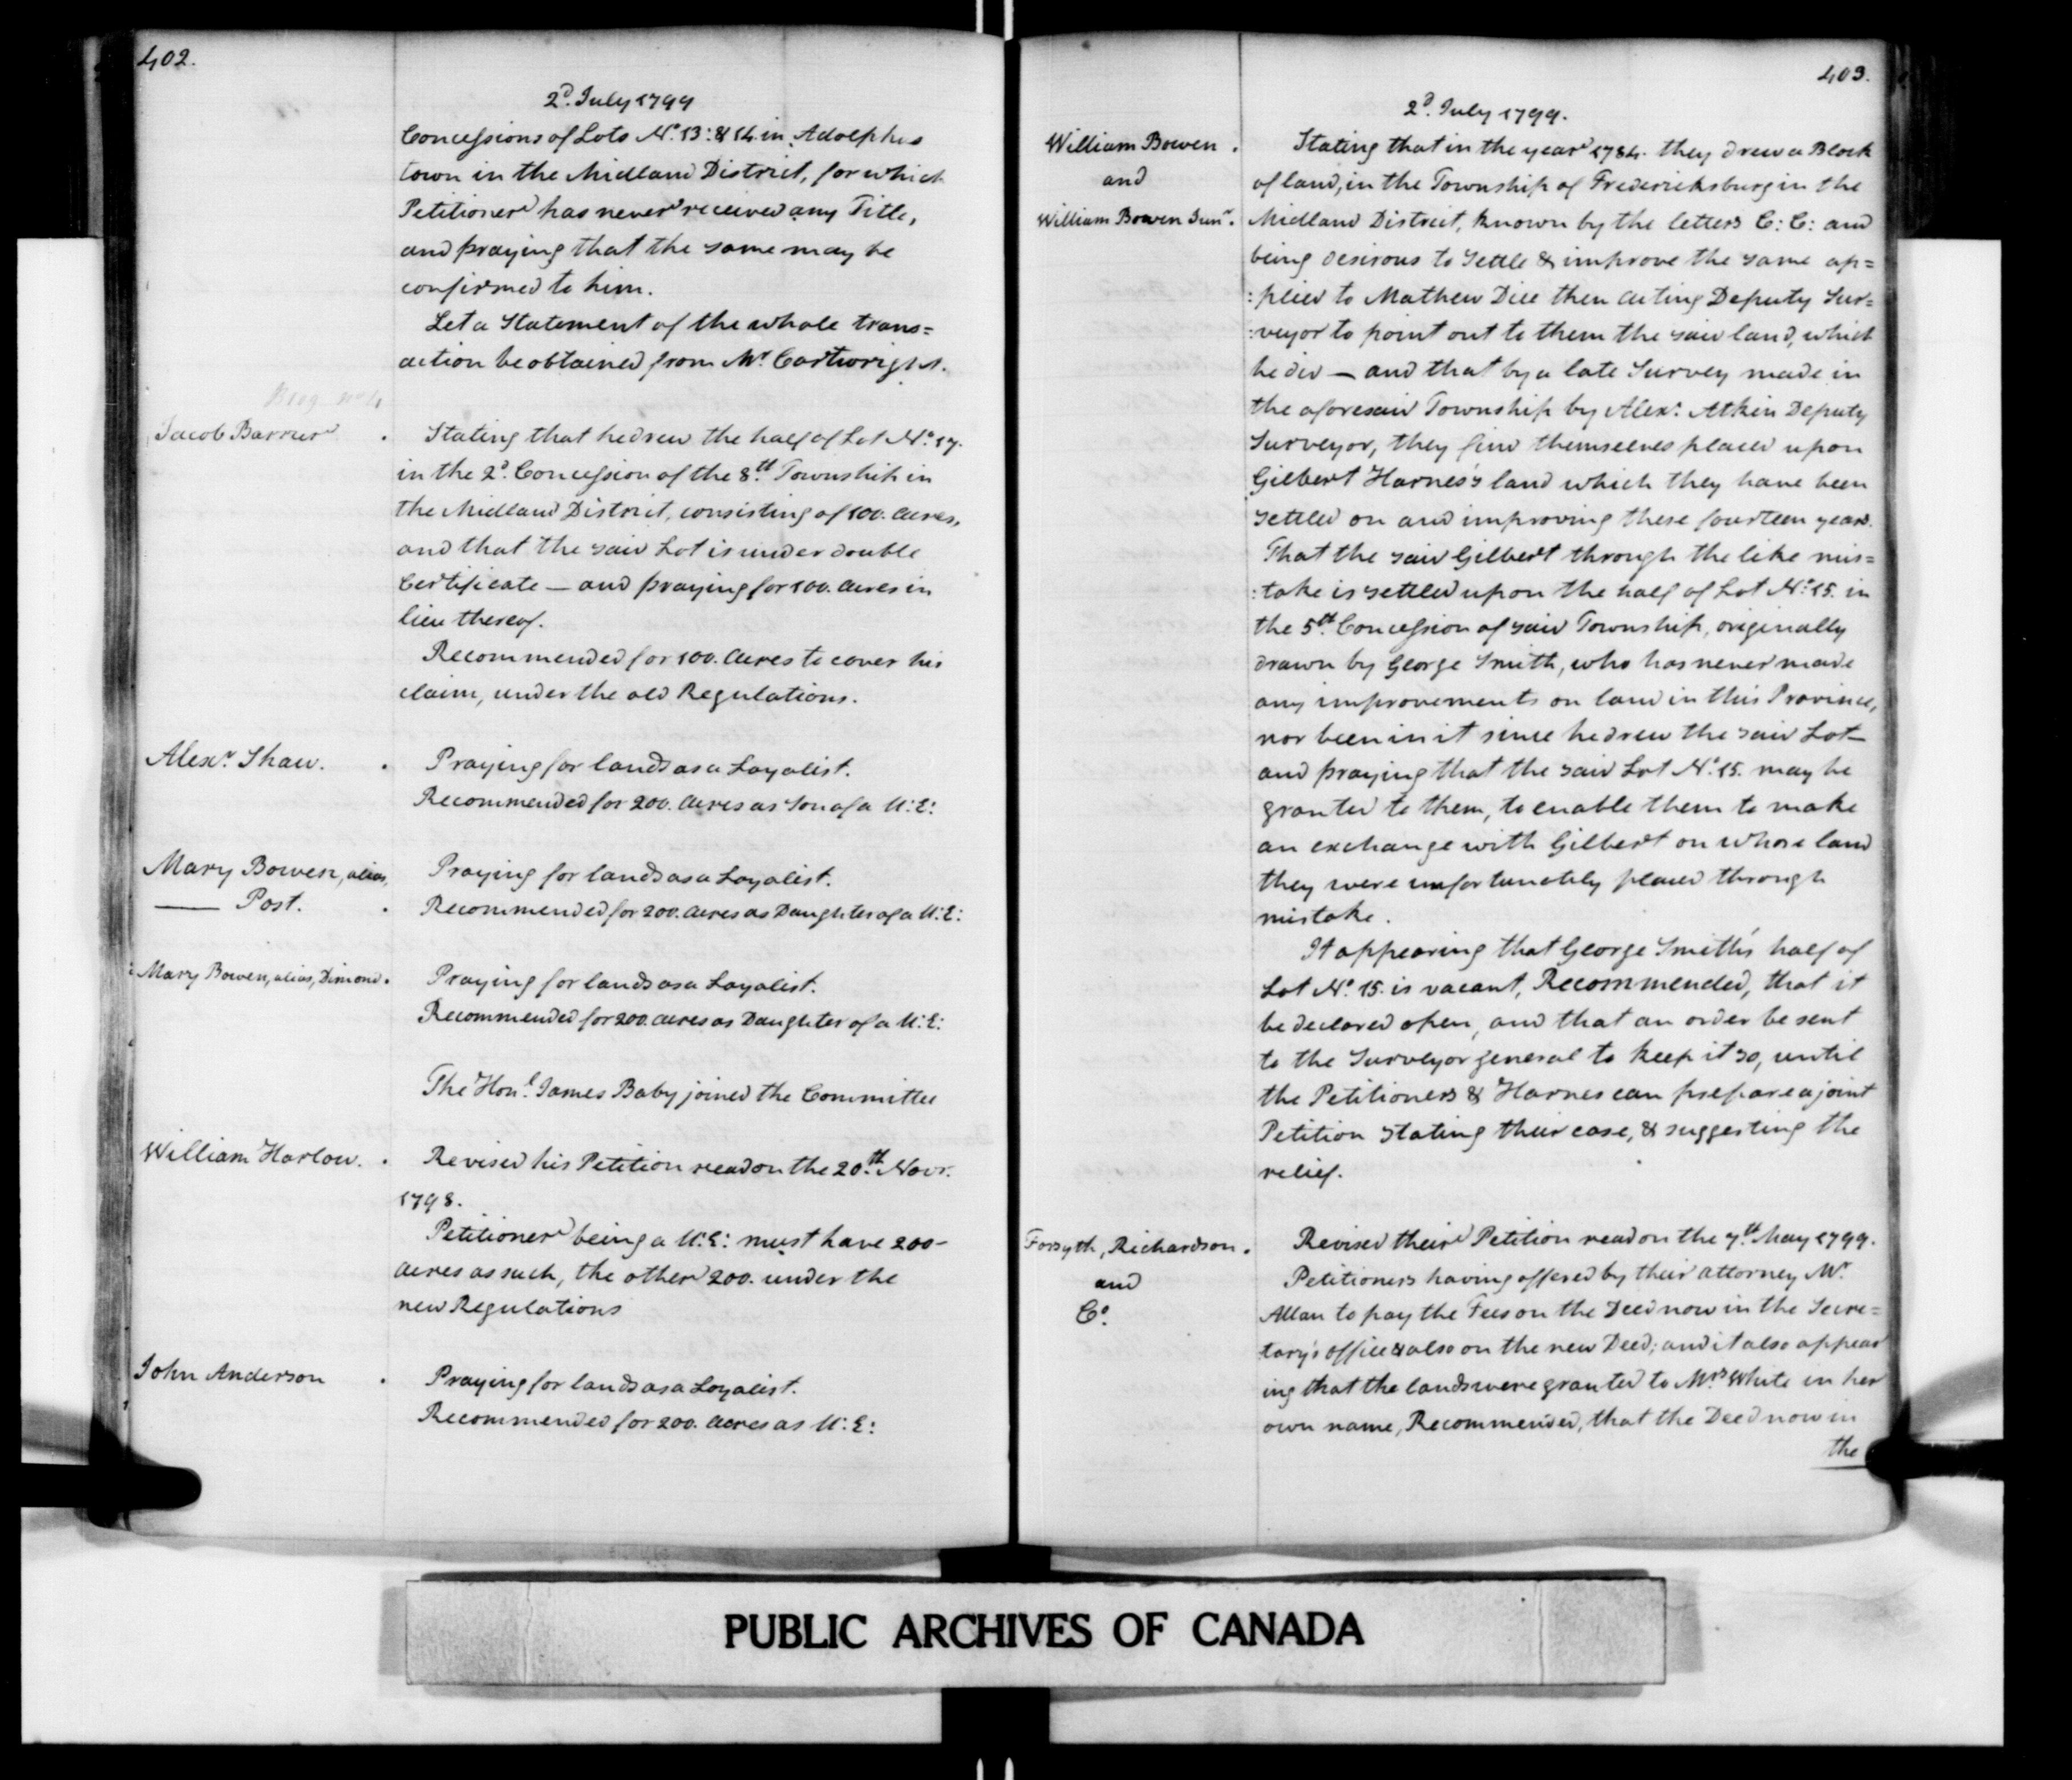 402.
2d. July 1799
Concessions of Lots No. 13. & 14. in Adolphus
town in the Midland District, for which
Petitioner has never received any Title,
and praying that the same may be
confirmed to him.
Let a Statement of the whole trans=
action be obtained from Mr. Cartwright.
Jacob Barrier .
Stating that he drew the half of Lot No. 17.
in the 2d. Concession of the 8th. Township in
the Midland District, consisting of 100. Acres,
and that the said Lot is under double
Certificate — and praying for 100. Acres in
lieu thereof.
Recommended for 100. Acres to cover his
claim, under the old Regulations.
Alexr. Shaw. .
Praying for lands as a Loyalist.
Recommended for 200. Acres as Son of a U: E:
Mary Bowen, alias,
—— Post. .
Praying for lands as a Loyalist.
Recommended for 200. Acres as Daughter of a U: E:
Mary Bowen, alias, Dimond .
Praying for lands as a Loyalist.
Recommended for 200. Acres as Daughter of a U: E:
The Honl. James Baby joined the Committee
William Harlow. .
Revised his Petition read on the 20th. Novr.
1798.
Petitioner being a U: E: must have 200-
Acres as such, the other 200. under the
new Regulations
John Anderson .
Praying for lands as a Loyalist.
Recommended for 200. Acres as U: E:
403.
2d. July 1799.
William Bowen .
and
William Bowen Junr.
Stating that in the year 1784. they drew a Block
of land, in the Township of Fredericksburg in the
Midland District, known by the letters C: C: and
being desirous to Settle & improve the same ap=
:plied to Mathew Dice then acting Deputy Sur=
:veyor to point out to them the said land, which
he did — and that by a late Survey made in
the aforesaid Township by Alexr. Atkin Deputy
Surveyor, they find themselves placed upon
Gilbert Harnes's land which they have been
settled on and improving these fourteen years.
That the said Gilbert through the like mis=
:take is settled upon the half of Lot No. 15. in
the 5th. Concession of said Township, originally
drawn by George Smith, who has never made
any improvements on land in this Province,
nor been in it since he drew the said Lot—
and praying that the said Lot No. 15. may be
granted to them, to enable them to make
an exchange with Gilbert on whose land
they were unfortunately placed through
mistake.
It appearing that George Smith's half of
Lot No. 15. is vacant, Recommended, that it
be declared open, and that an order be sent
to the Surveyor general to keep it so, until
the Petitioners & Harnes can prepare a joint
Petition stating their case, & suggesting the
relief.
Forsyth, Richardson .
and
Co.
Revised their Petition read on the 7th. May 1799.
Petitioners having offered by their attorney Mr.
Allan to pay the Fees on the Deed now in the Secre=
tary's office & also on the new Deed; and it also appear
ing that the lands were granted to Mrs. White in her
own name, Recommended, that the Deed now in
the
PUBLIC ARCHIVES OF CANADA